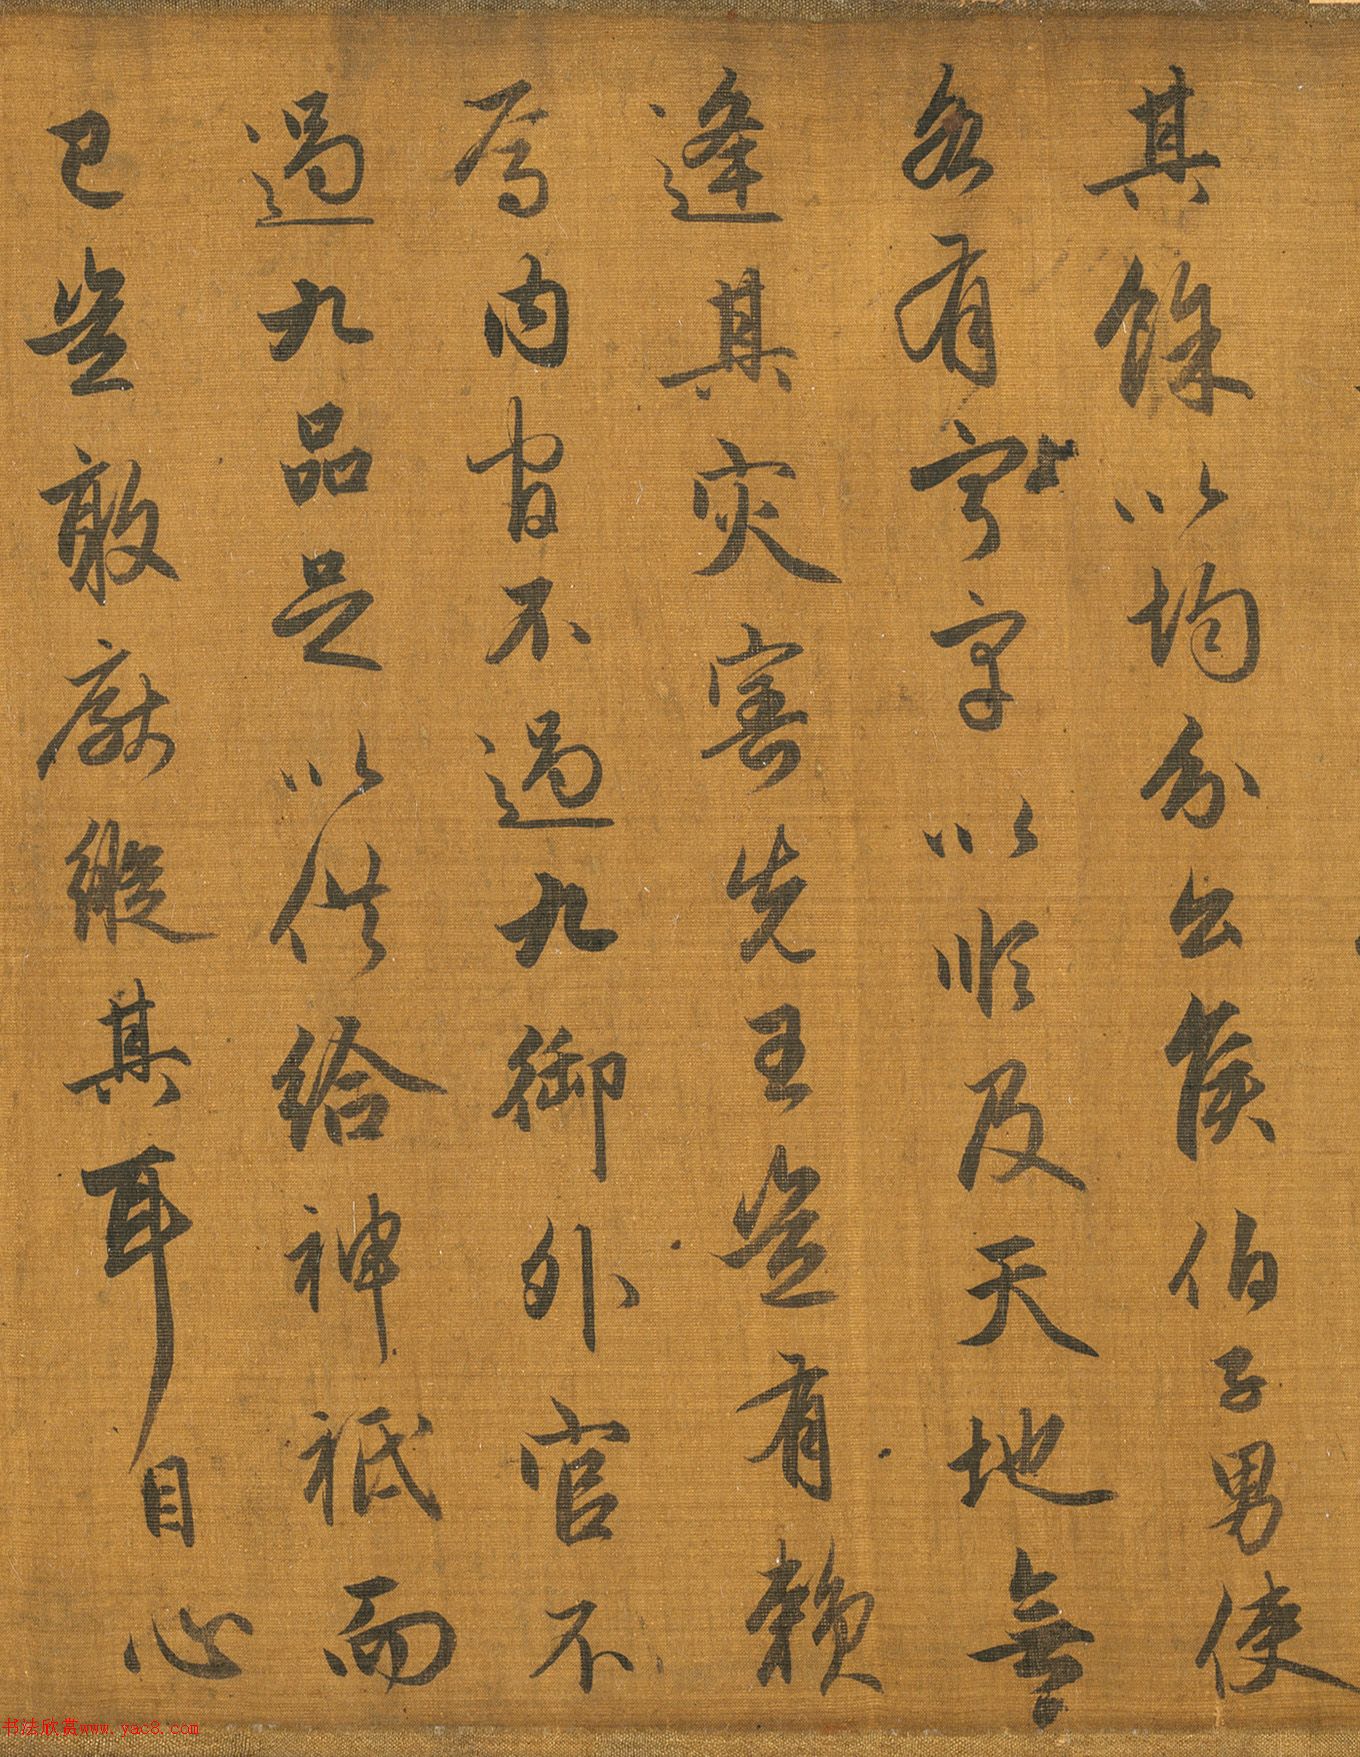 其餘以均分公侯伯子男使
各有寧宇以順及天地無
逢其灾害先王豈有賴
焉內官不過九御外官不
過九品足以供給神祇而
已豈敢厭縱其耳目心
书法欣赏www.yac8.com